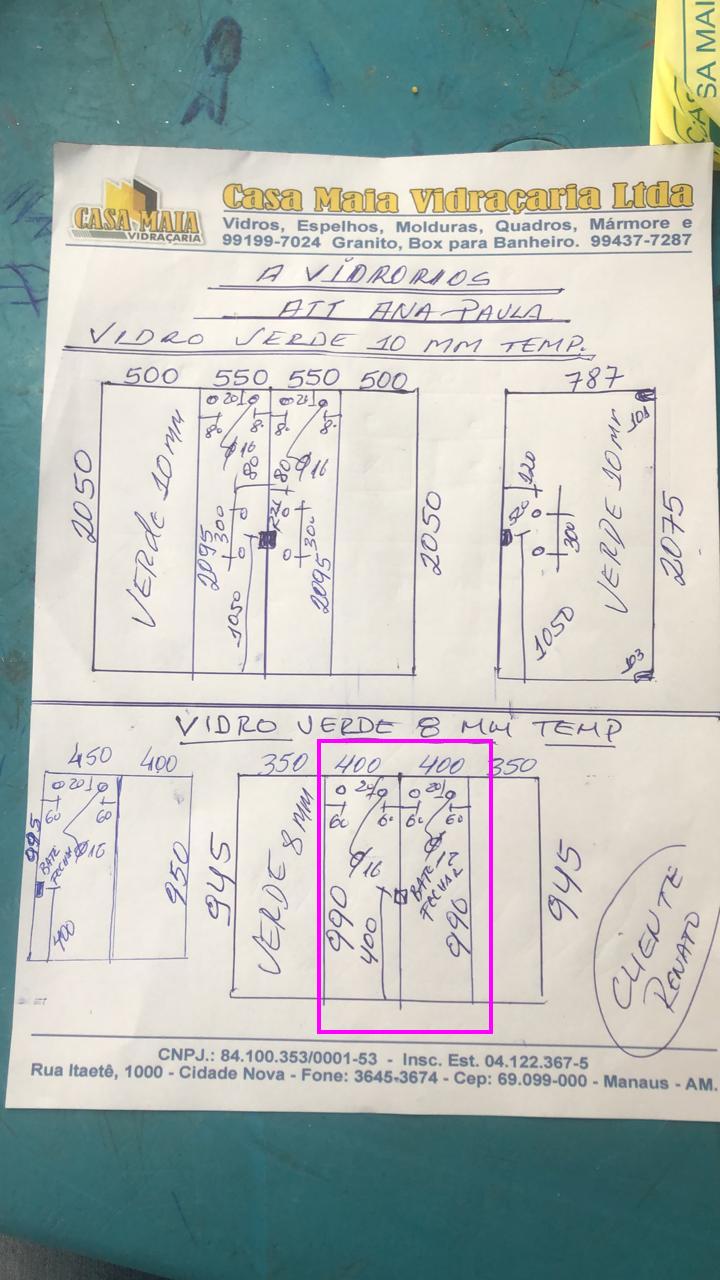 CASA MAIA
VIDRAÇARIA
Casa Maia Vidraçaria Ltda
Vidros, Espelhos, Molduras, Quadros, Mármore e
99199-7024 Granito, Box para Banheiro. 99437-7287
A VIDRORIOS
ATT ANA PAULA
VIDRO VERDE 10 MM TEMP.
500 550 550 500
20 20
80 80 80 80
Ø16 Ø16
80 80
2050
VERDE 10 MM
2095
300
1050
300
2095
2050
787
120
300
1050
VERDE 10 MM
2075
VIDRO VERDE 8 MM TEMP
450 400
20
60 60
Ø16
995
BATE
FECHA
400
950
350 400 400 350
20 20
60 60 60 60
Ø16 Ø
945
VERDE 8 MM
990
400
BATE
FECHAR
990
945
CLIENTE
RENATO
CNPJ.: 84.100.353/0001-53 - Insc. Est. 04.122.367-5
Rua Itaetê, 1000 - Cidade Nova - Fone: 3645-3674 - Cep: 69.099-000 - Manaus - AM.
SA MAI